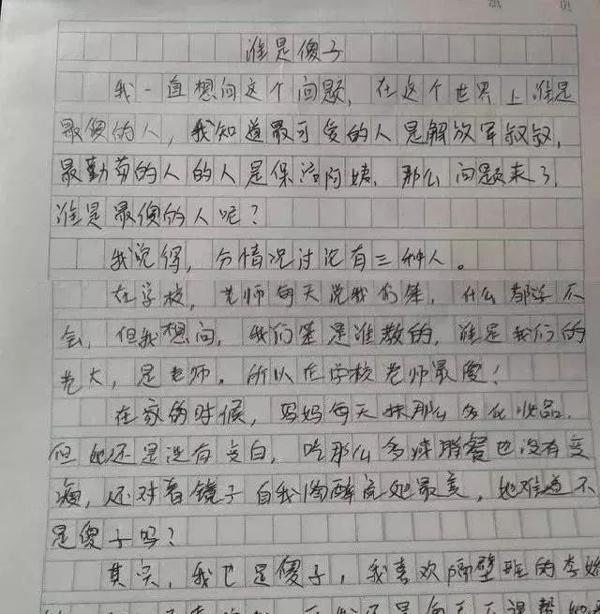 谁是傻子
我一直想问这个问题，在这个世界上谁是
最傻的人，我知道最可爱的人是解放军叔叔，
最勤劳的人的人是保洁阿姨，那么问题来了，
谁是最傻的人呢？
我觉得，分情况讨论有三种人。
在学校，老师每天说我们笨，什么都学不
会，但我想问，我们笨是谁教的，谁是我们的
老大，是老师。所以在学校老师最傻！
在家的时候，妈妈每天抹那么多化妆品，
但她还是没有变白，吃那么多减脂餐也没有变
瘦，还对着镜子自我陶醉说她最美，她难道不
是傻子吗？
其实，我也是傻子，我喜欢隔壁班的李